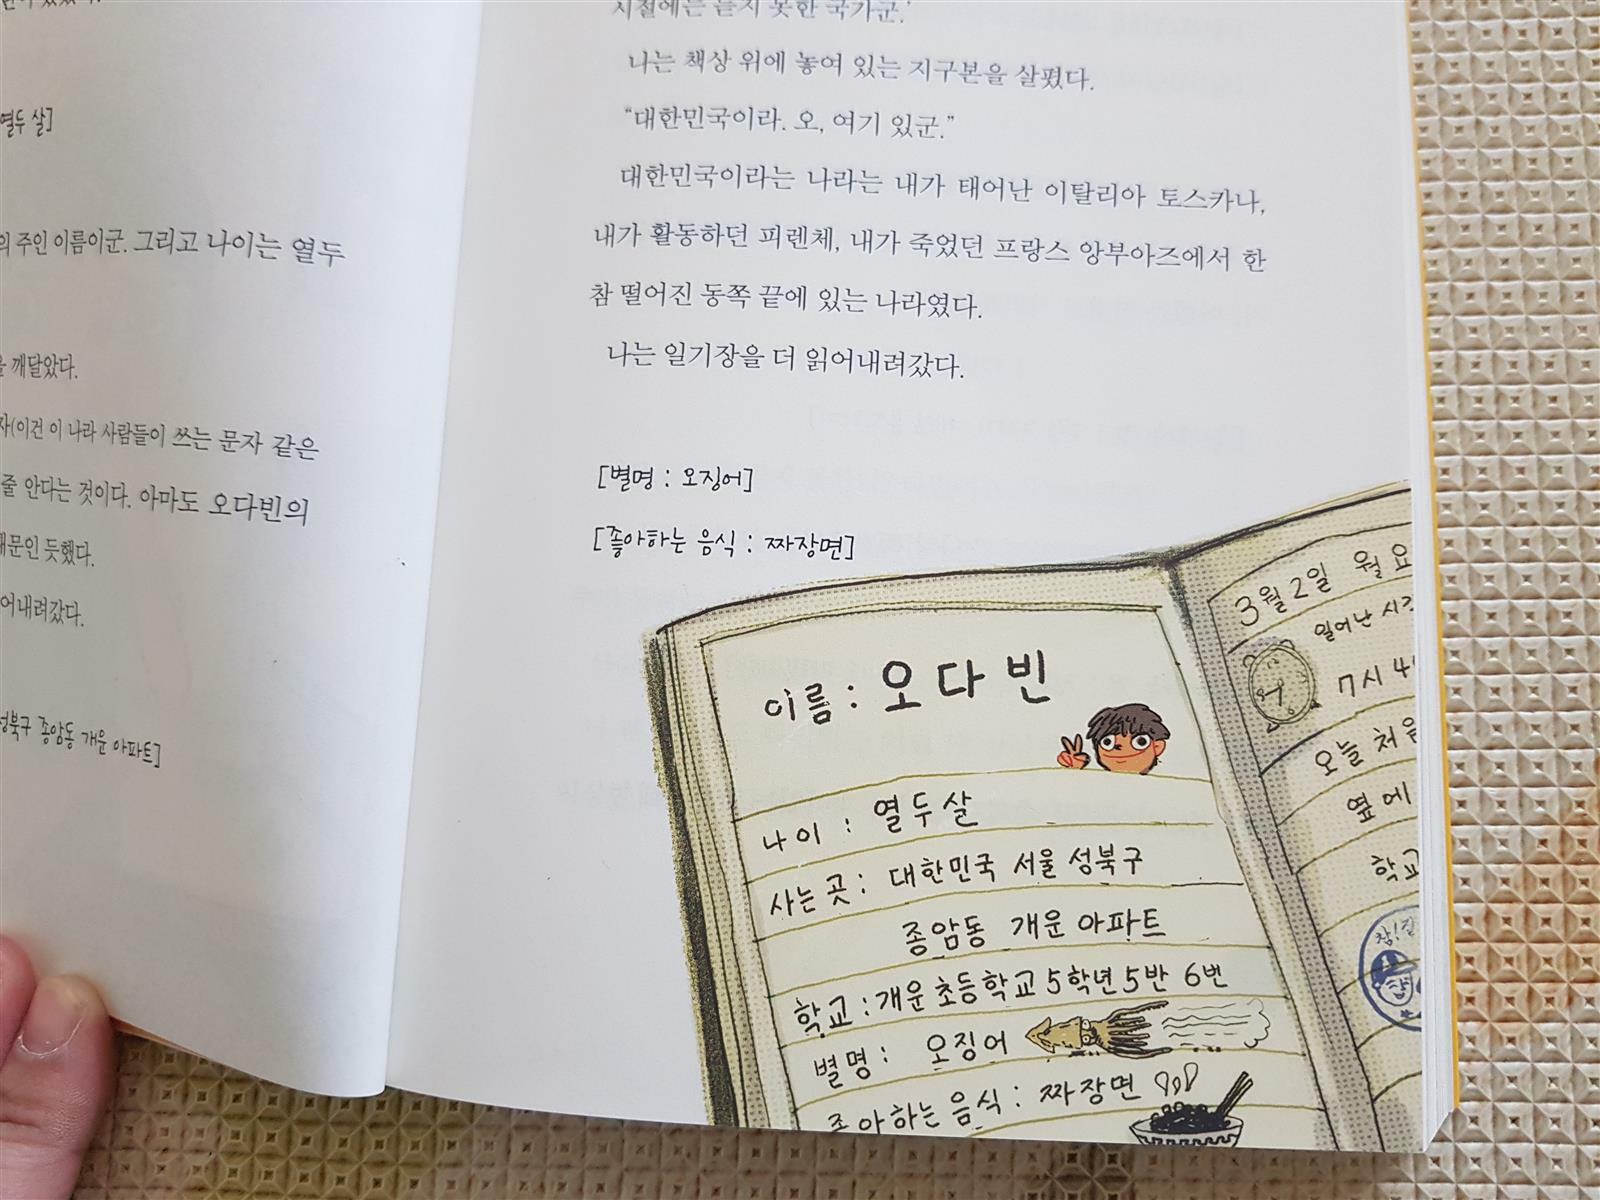 열두 살]
의 주인 이름이군. 그리고 나이는 열두
을 깨달았다.
자(이건 이 나라 사람들이 쓰는 문자 같은
줄 안다는 것이다. 아마도 오다빈의
때문인 듯했다.
어내려갔다.
성북구 종암동 개운 아파트]
시절에는 듣지 못한 국가군.’
나는 책상 위에 놓여 있는 지구본을 살폈다.
“대한민국이라. 오, 여기 있군.”
대한민국이라는 나라는 내가 태어난 이탈리아 토스카나,
내가 활동하던 피렌체, 내가 죽었던 프랑스 앙부아즈에서 한
참 떨어진 동쪽 끝에 있는 나라였다.
나는 일기장을 더 읽어내려갔다.
[별명 : 오징어]
[좋아하는 음식 : 짜장면]
이름 : 오다빈
나이 : 열두살
사는 곳 : 대한민국 서울 성북구
종암동 개운 아파트
학교 : 개운 초등학교 5학년 5반 6번
별명 : 오징어
좋아하는 음식 : 짜장면
3월 2일 월요
일어난 시간
7시 4
오늘 처음
옆에
학교
참!잘